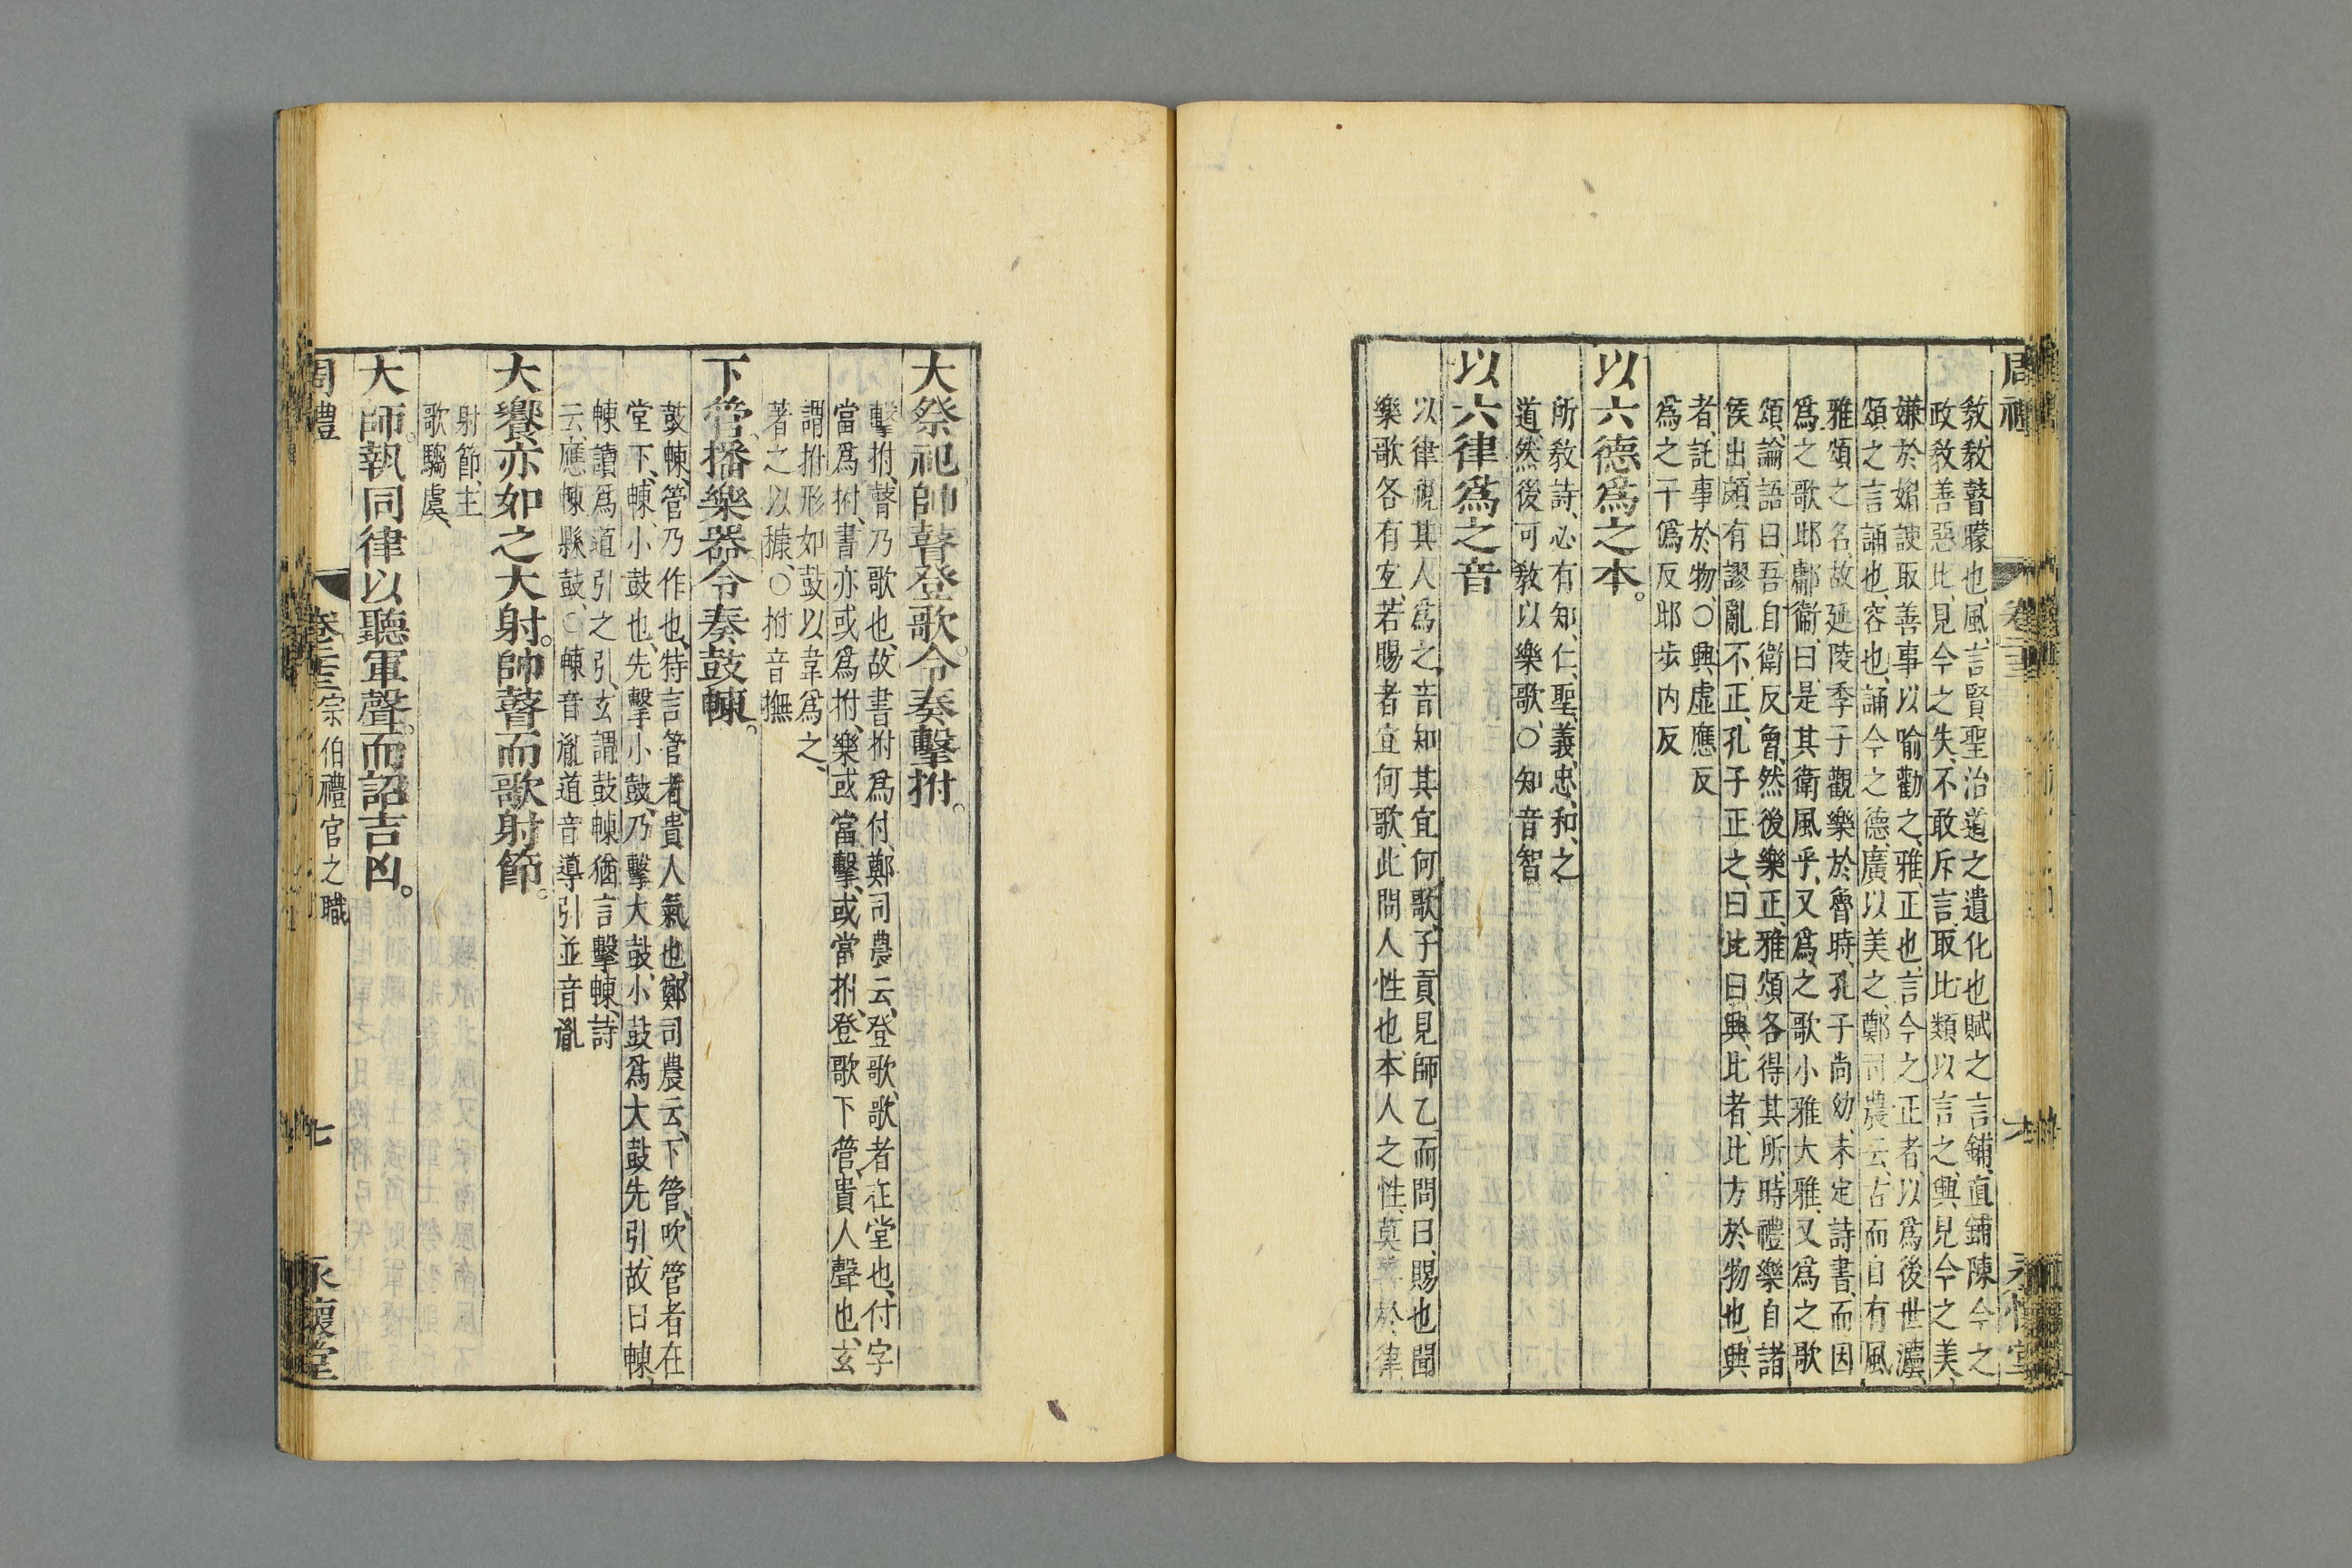 周禮
卷二十三
六
永懷堂
敎敎瞽矇也、風、言賢聖治道之遺化也賦之言鋪、直鋪陳今之
政敎善惡、比、見今之失、不敢斥言、取比類以言之、興、見今之美、
嫌於媚諛取善事以喻勸之、雅、正也、言今之正者、以爲後世灋、
頌之言誦也、容也、誦今之德、廣以美之、鄭司農云、古而自有風
雅頌之名、故延陵季子觀樂於魯時、孔子尚幼、未定詩書、而因
爲之歌邶鄘衞、曰、是其衛風乎、又爲之歌小雅大雅、又爲之歌
頌、論語曰、吾自衛反魯、然後樂正、雅頌各得其所、時禮樂自諸
侯出、頗有謬亂不正、孔子正之、曰比曰興、比者、比方於物也、興
者、託事於物、○興虛應反
爲之于僞反邶步内反
以六德爲之本。
所敎詩、必有知、仁、聖、義、忠、和、之
道、然後可敎以樂歌、○知音智
以六律爲之音
以律視其人爲之音知其宜何歌、子貢見師乙而問曰、賜也聞
樂歌各有宜、若賜者宜何歌、此問人性也、本人之性、莫善於律、
大祭祀。帥瞽登歌。令奏擊拊。
擊拊、瞽乃歌也、故書拊爲付、鄭司農云、登歌、歌者在堂也、付字
當爲拊、書亦或爲拊、樂或當擊、或當拊、登歌下管、貴人聲也、玄
謂拊形如鼓以韋爲之、
著之以穅、○拊音撫
下管。播樂器。令奏鼓朄。
鼓朄、管乃作也、特言管者、貴人氣也、鄭司農云、下管、吹管者在
堂下、朄、小鼓也、先擊小鼓、乃擊大鼓、小鼓爲大鼓先引、故曰朄、
朄讀爲道引之引、玄謂鼓朄猶言擊朄、詩
云、應朄縣鼓、○朄音胤道音導引並音胤
大饗亦如之大射。帥瞽而歌射節。
射節、主
歌騶虞、
大師。執同律以聽軍聲。而詔吉凶。
周禮
卷二十三 宗伯禮官之職
七
永懷堂